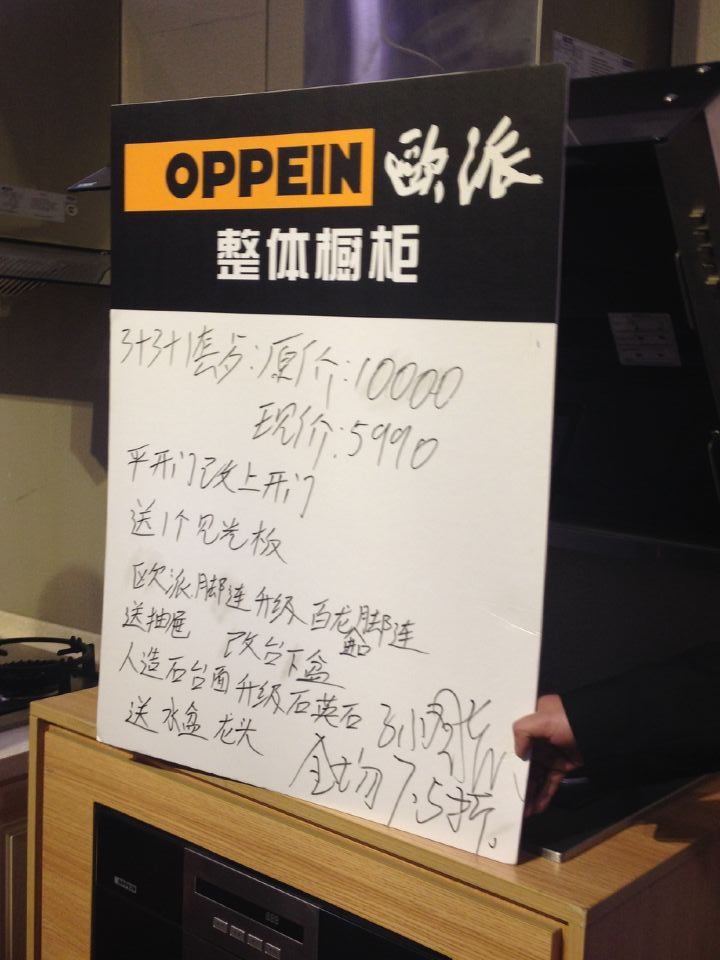 OPPEIN 歐派
整体橱柜
3+3+1套另:原价:10000
现价:5990
平开门改上开门
送1个见光板
欧派脚连升级百龙脚连
送抽屉 改台下盆
人造石台面升级石英石
送水盆龙头
全场7.5折
OPPEIN